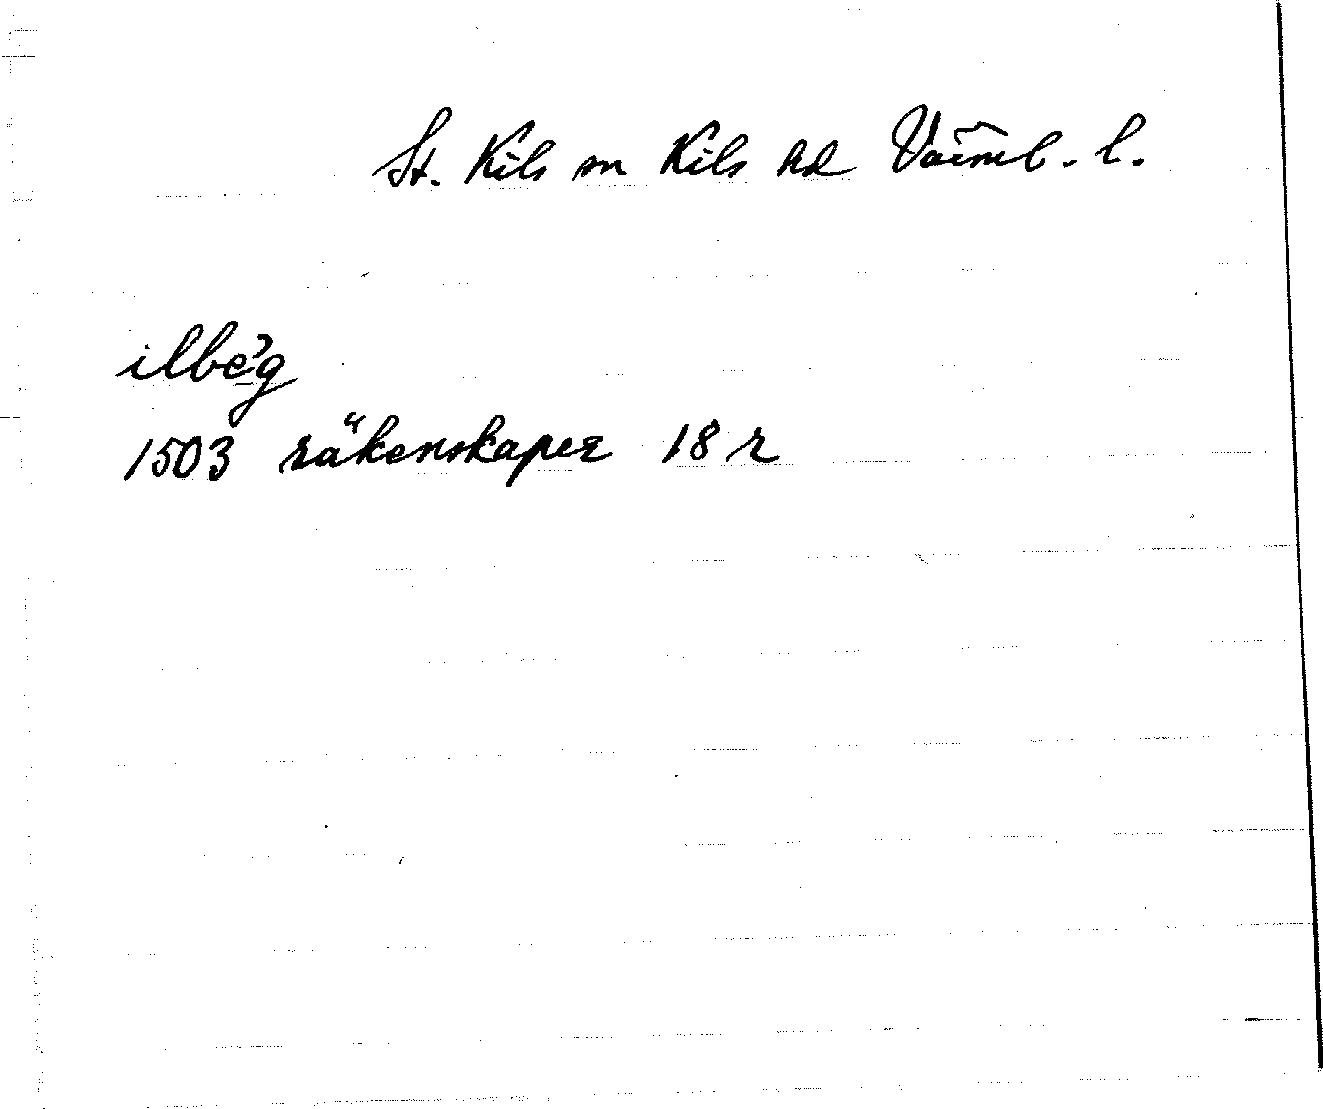 St. Kils sn Kils hd Värml. l.
ilbe²g
1503 räkenskaper 18 r